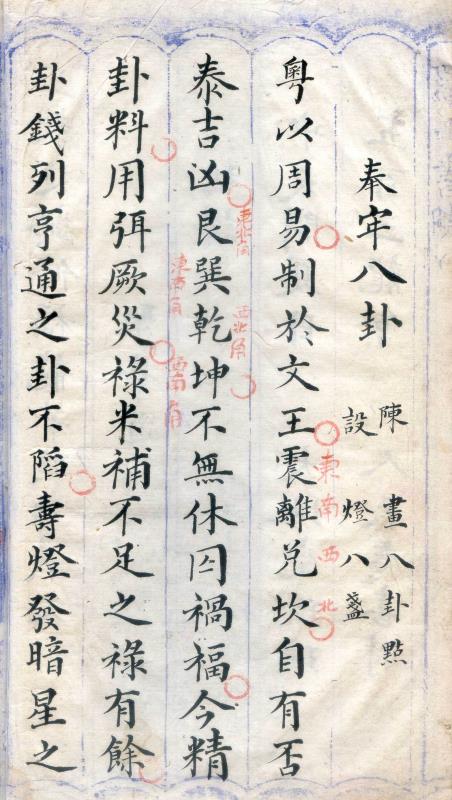 奉牢八卦
陳畫八卦點
設燈八盞
粤以周易制於文王震離兌坎自有否
東南西北
泰吉凶艮巽乾坤不無休囚禍福今精
東北角
西北角
西南角
卦料用弭厥災祿米補不足之祿有餘
卦錢列亨通之卦不陷壽燈發暗星之